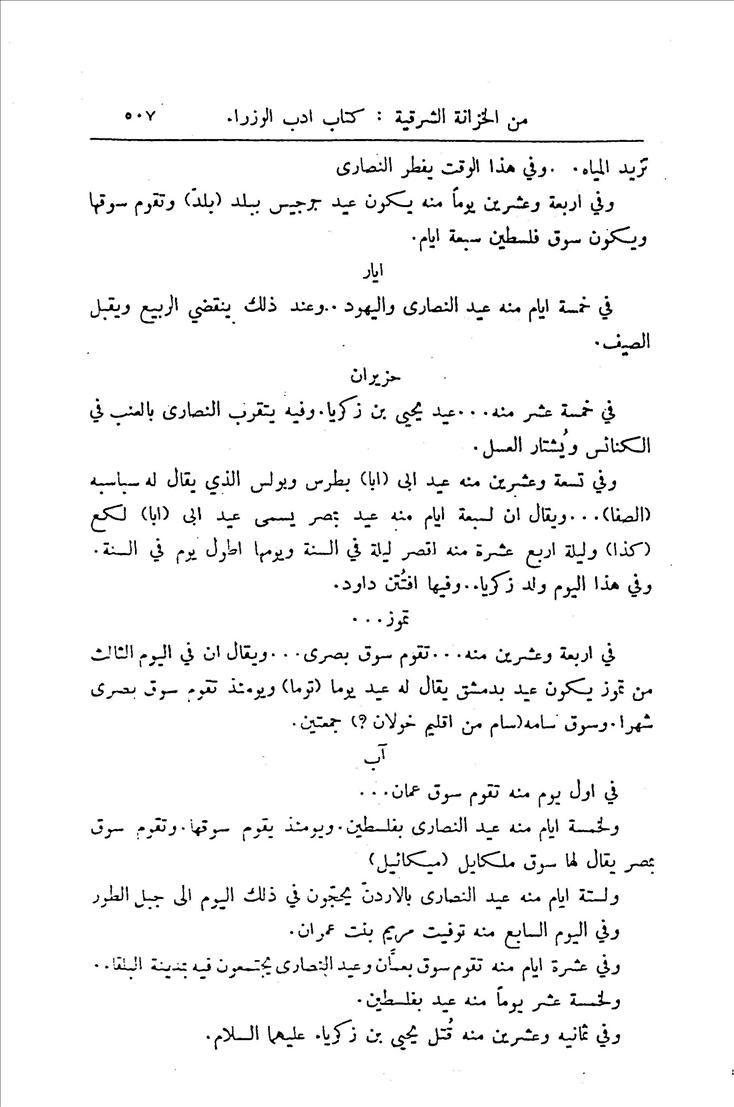 من الخزانة الشرقية : كتاب ادب الوزراء ٥٠٧
تزيد المياه. .وفي هذا الوقت يفطر النصارى
وفي اربعة وعشرين يوماً منه يكون عيد جرجيس ببلد (بلدّ) وتقوم سوقها
ويكون سوق فلسطين سبعة ايام.
ايار
في خمسة ايام منه عيد النصارى واليهود ..وعند ذلك ينقضي الربيع ويقبل
الصيف.
حزيران
في خمسة عشر منه...عيد يحيى بن زكريا.وفيه يتقرب النصارى بالعنب في
الكنائس ويُشتار العسل.
وفي تسعة وعشرين منه عيد ابى (ابا) بطرس وبولس الذي يقال له سباسبه
(الصفا)...ويقال ان لسبعة ايام منه عيد بمصر يسمى عيد ابى (ابا) لكع
(كذا) وليلة اربع عشرة منه اقصر ليلة في السنة ويومها اطول يوم في السنة.
وفي هذا اليوم ولد زكرياء..وفيها افتُتن داود.
تموز...
في اربعة وعشرين منه...تقوم سوق بصرى...ويقال ان في اليوم الثالث
من تموز يكون عيد بدمشق يقال له عيد يوما (توما) ويومئذ تقوم سوق بصرى
شهرا.وسوق سامه(سام من اقليم خولان ?) جمعتين.
آب
في اول يوم منه تقوم سوق عمان...
ولخمسة ايام منه عيد النصارى بفلسطين.ويومئذ يقوم سوقها.وتقوم سوق
بمصر يقال لها سوق ملكايل (ميكائيل)
ولستة ايام منه عيد النصارى بالاردنّ يحجّون في ذلك اليوم الى جبل الطور
وفي اليوم السابع منه توفيت مريم بنت عمران.
وفي عشرة ايام منه تقوم سوق بعمَّان وعيد النصارى يجتمعون فيه بمدينة البلقاء..
ولخمسة عشر يوماً منه عيد بفلسطين.
وفي ثمانيه وعشرين منه قُتل يحيى بن زكرياء عليهما السلام.